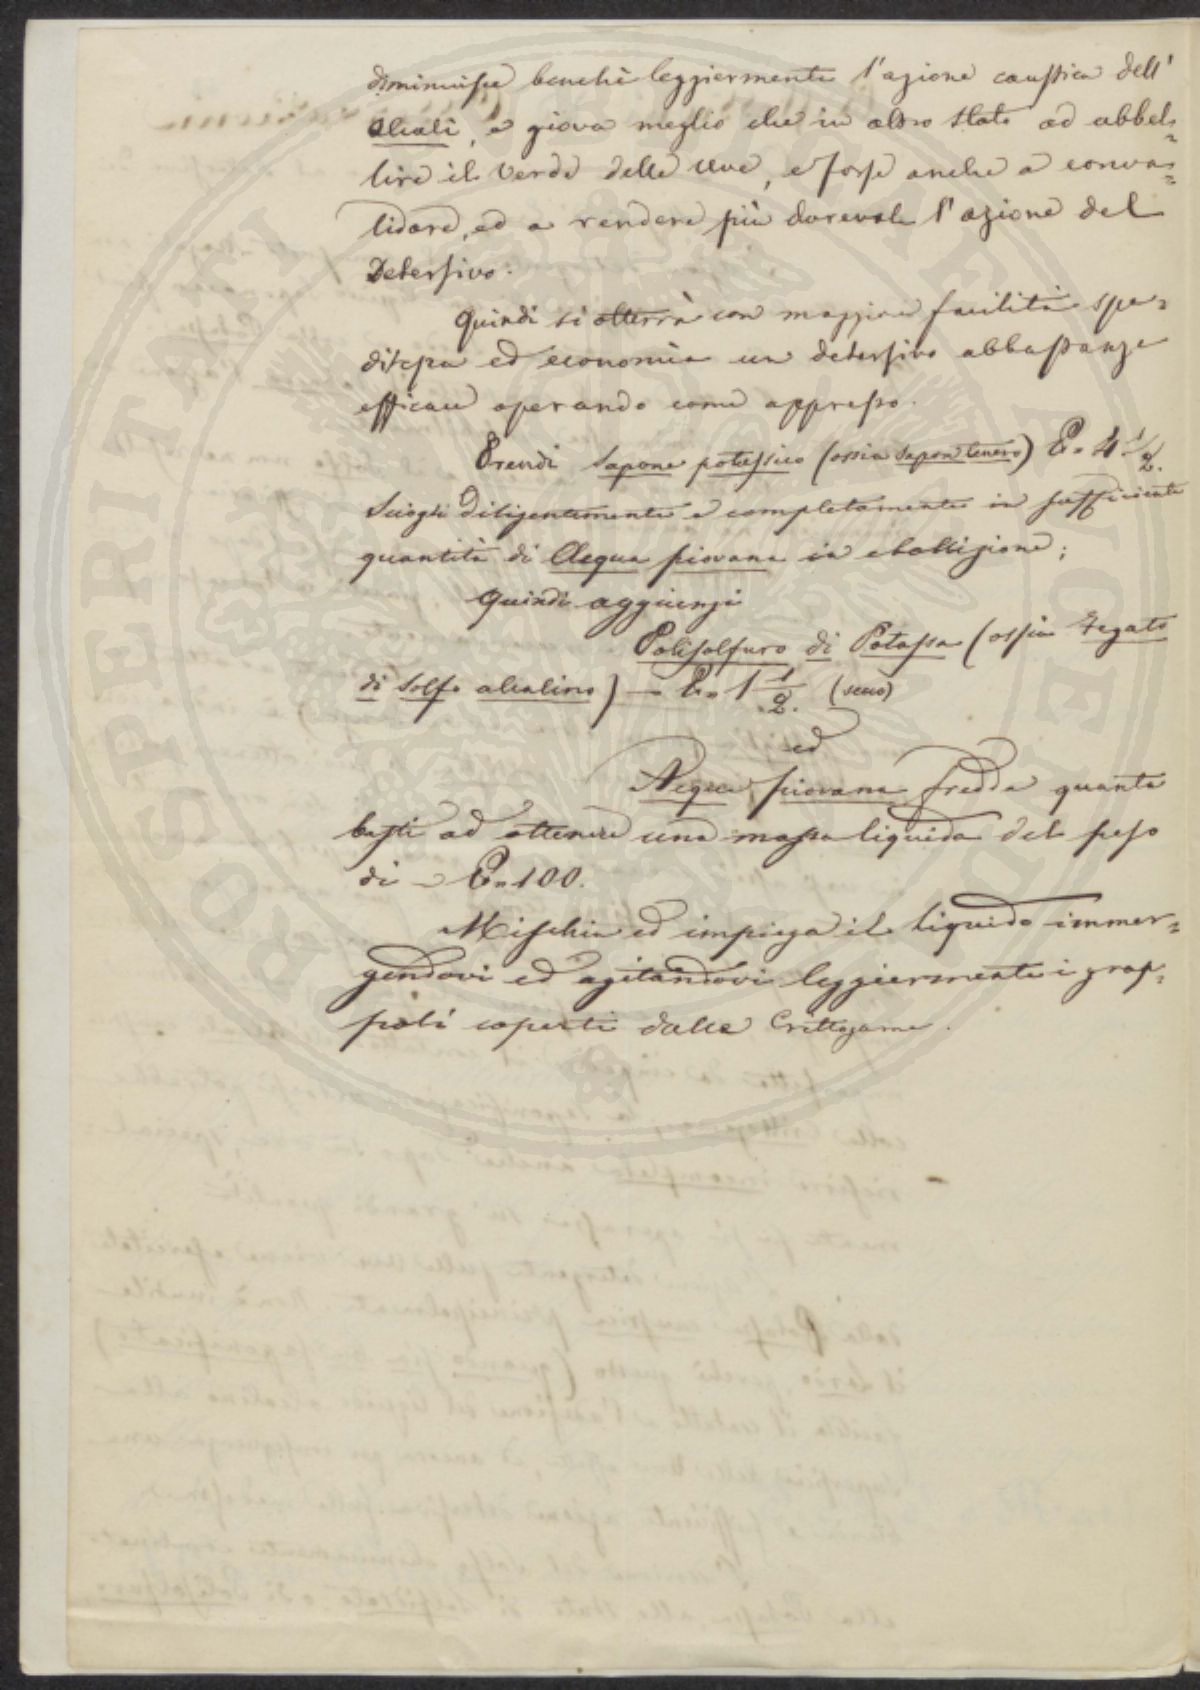 diminuisce benchè leggiermente l'azione caustica dell'
alcali, e giova meglio che in altro stato ad abbel=
lire il verde delle uve, e forse anche a conva=
lidare, ed a rendere più durevole l'azione del
Detersivo.
Quindi si otterrà con maggior facilità spe=
ditezza ed economia un detersivo abbastanza
efficace operando come appresso.
Prendi Sapone potassico (ossia Sapon tenero) P. 4 1/2.
Sciogli diligentemente e completamente in sufficiente
quantità di Acqua piovana in ebollizione;
Quindi aggiungi
Polisolfuro di Potassa (ossia Fegato
di Solfo alcalino) — P. 1 1/2. (secco)
ed
Acqua piovana fredda quanta
basti ad ottenere una massa liquida del peso
di = P. 100.
Mischia ed impiega il liquido immer=
gendovi ed agitandovi leggiermente i grap=
poli coperti dalla Crittogama.
PROSPERITATI PUBLICAE AUGENDAE